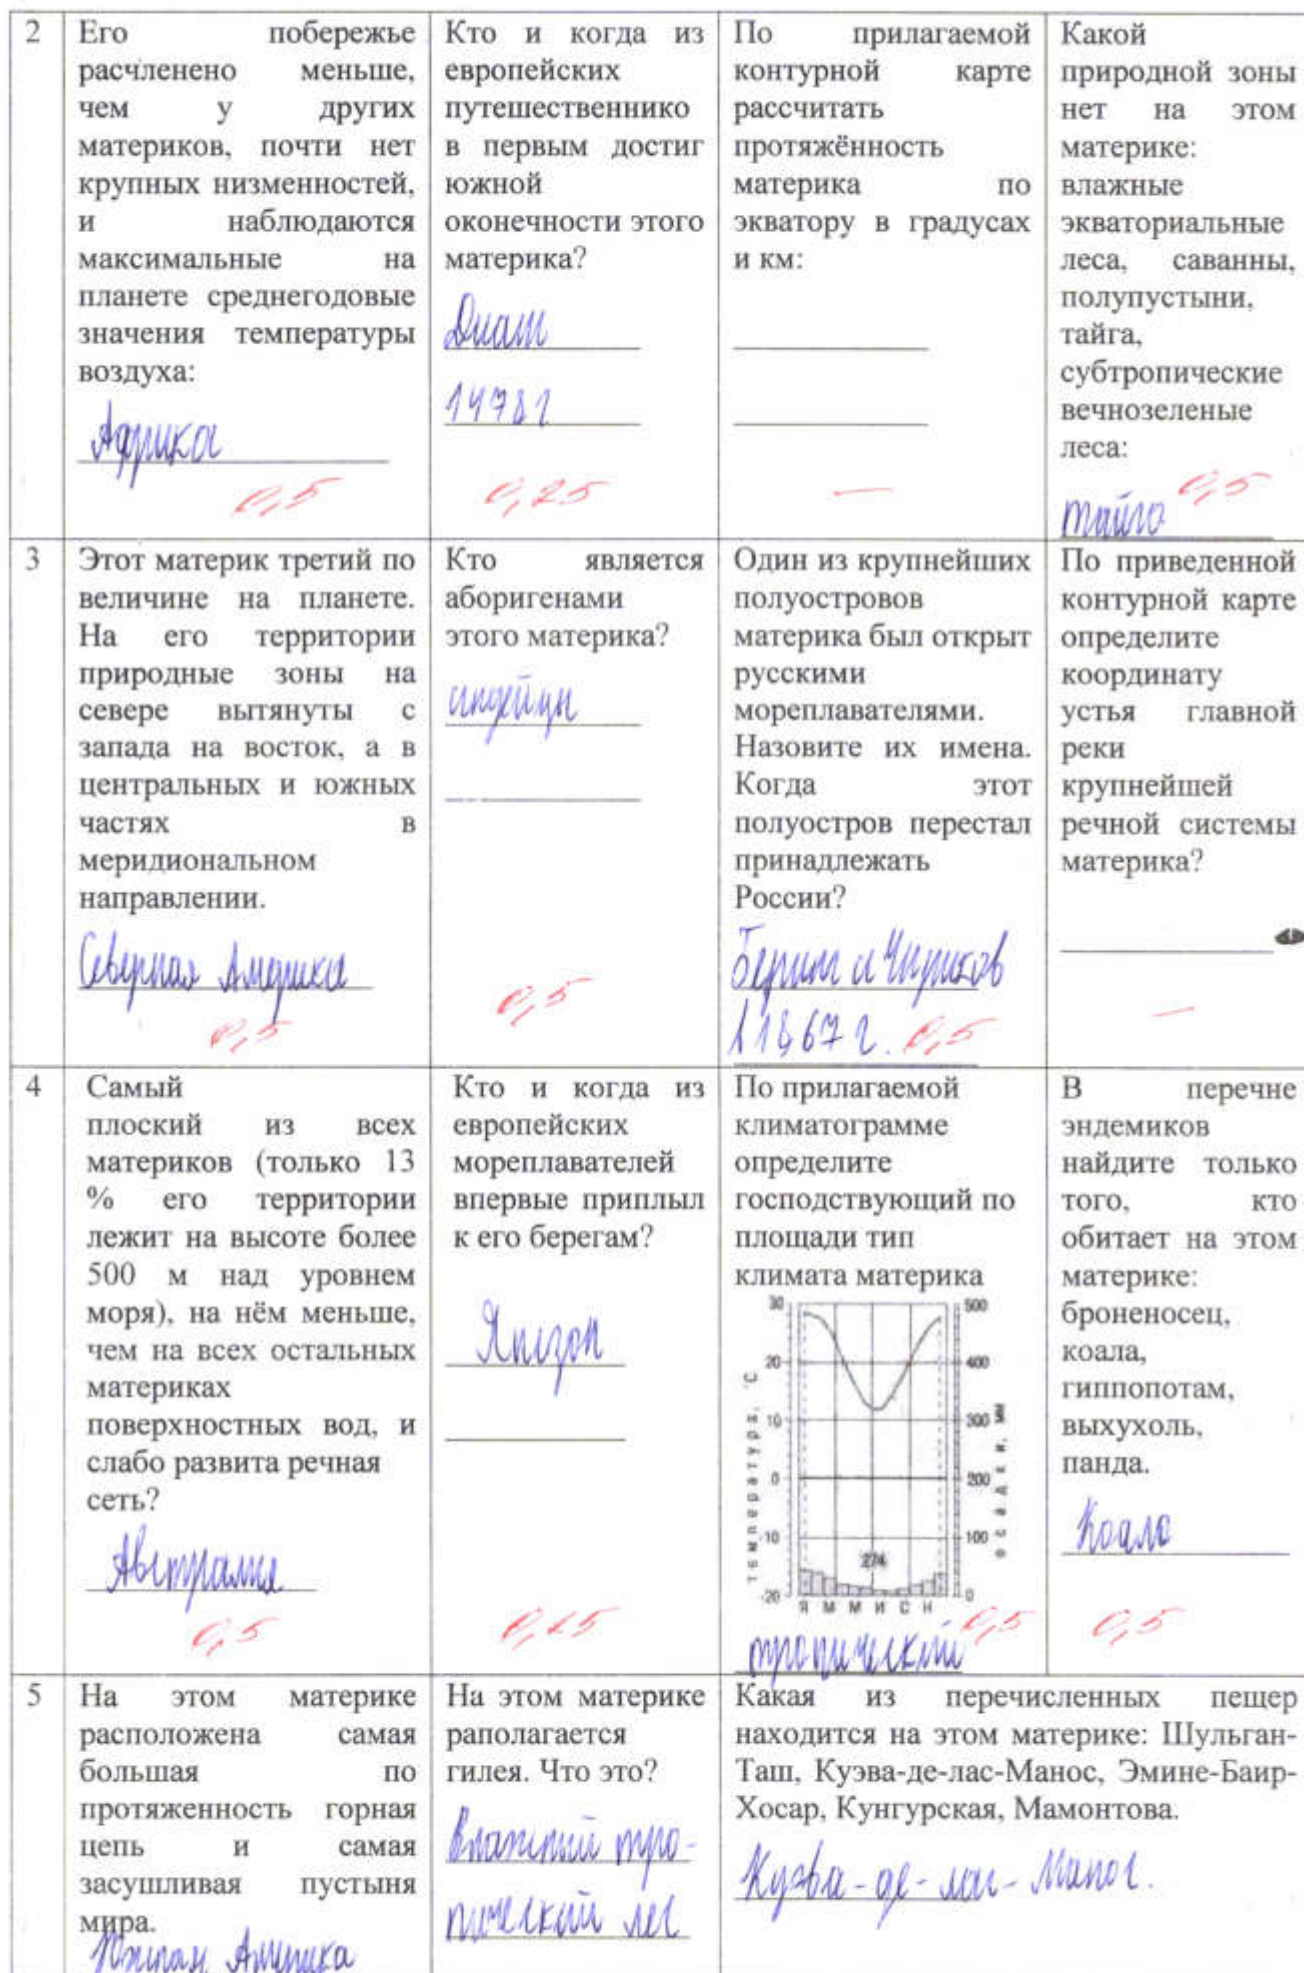 2
Его побережье
расчленено меньше,
чем у других
материков, почти нет
крупных низменностей,
и наблюдаются
максимальные на
планете среднегодовые
значения температуры
воздуха:
Африка
0,5
Кто и когда из
европейских
путешественнико
в первым достиг
южной
оконечности этого
материка?
Диаш
1478г
0,25
По прилагаемой
контурной карте
рассчитать
протяжённость
материка по
экватору в градусах
и км:
—
Какой
природной зоны
нет на этом
материке:
влажные
экваториальные
леса, саванны,
полупустыни,
тайга,
субтропические
вечнозеленые
леса:
0,5
тайга
3
Этот материк третий по
величине на планете.
На его территории
природные зоны на
севере вытянуты с
запада на восток, а в
центральных и южных
частях в
меридиональном
направлении.
Северная Америка
0,5
Кто является
аборигенами
этого материка?
индейцы
0,5
Один из крупнейших
полуостровов
материка был открыт
русскими
мореплавателями.
Назовите их имена.
Когда этот
полуостров перестал
принадлежать
России?
Беринг и Чириков
1867 г. 0,5
По приведенной
контурной карте
определите
координату
устья главной
реки
крупнейшей
речной системы
материка?
—
4
Самый
плоский из всех
материков (только 13
% его территории
лежит на высоте более
500 м над уровнем
моря), на нём меньше,
чем на всех остальных
материках
поверхностных вод, и
слабо развита речная
сеть?
Австралия
0,5
Кто и когда из
европейских
мореплавателей
впервые приплыл
к его берегам?
Янсзон
0,25
По прилагаемой
климатограмме
определите
господствующий по
площади тип
климата материка
30 500
20 400
10 300
0 200
-10 100
-20 0
температура, °С
осадки, мм
274
Я М М И С Н
0,5
тропический
В перечне
эндемиков
найдите только
того, кто
обитает на этом
материке:
броненосец,
коала,
гиппопотам,
выхухоль,
панда.
Коала
0,5
5
На этом материке
расположена самая
большая по
протяженность горная
цепь и самая
засушливая пустыня
мира.
Южная Америка
На этом материке
раполагается
гилея. Что это?
Влажный тро-
пический лес
Какая из перечисленных пещер
находится на этом материке: Шульган-
Таш, Куэва-де-лас-Манос, Эмине-Баир-
Хосар, Кунгурская, Мамонтова.
Куэва-де-лас-Манос.